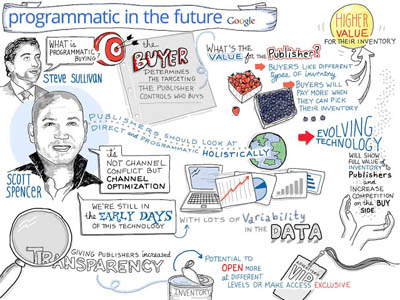 programmatic in the future Google
WHAT IS
PROGRAMMATIC
BUYING?
STEVE SULLIVAN
the
BUYER
DETERMINES
THE TARGETING
THE PUBLISHER
CONTROLS WHO BUYS
WHAT'S THE
VALUE for the Publisher?
BUYERS LIKE DIFFERENT
types of inventory
BUYERS WILL
PAY MORE WHEN
THEY CAN PICK
THEIR INVENTORY
HIGHER
VALUE
FOR THEIR INVENTORY
SCOTT
SPENCER
PUBLISHERS SHOULD LOOK AT
DIRECT and PROGRAMMATIC HOLISTICALLY
its
NOT CHANNEL
CONFLICT BUT
CHANNEL
OPTIMIZATION
EVOLVING
TECHNOLOGY
WILL SHOW
FULL VALUE of
INVENTORY to
Publishers
AND
INCREASE
COMPETITION
on the BUY
SIDE
WE'RE STILL
IN THE
EARLY DAYS
OF THIS TECHNOLOGY
WITH LOTS OF Variability
IN THE
DATA
GIVING PUBLISHERS increased
TRANSPARENCY
INVENTORY
POTENTIAL TO
OPEN more
AT DIFFERENT
LEVELS OR MAKE ACCESS EXCLUSIVE.
VIP